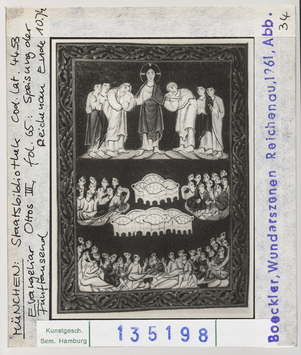 MÜNCHEN: Staatsbibliothek Cod. lat. 4453
Evangeliar Ottos III, fol. 65: Speisung der
Fünftausend Reichenau Ende 10. Jh
34
Boeckler, Wunderszenen Reichenau, 1961, Abb.
Kunstgesch.
Sem. Hamburg
135198